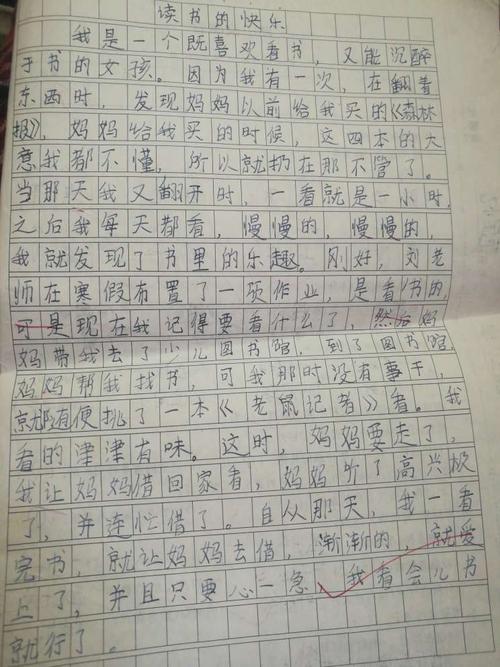 读书的快乐
我是一个既喜欢看书，又能沉醉
于书的女孩。因为我有一次，在翻着
东西时，发现妈妈以前给我买的《森林
报》，妈妈给我买的时候，这四本的大
意我都不懂，所以就扔在那不管了。
当那天我又翻开时，一看就是一小时，
之后我每天都看，慢慢的，慢慢的，
我就发现了书里的乐趣。刚好，刘老
师在寒假布置了一项作业，是看书的，
可是现在我记得要看什么了，然后妈
妈带我去了少儿图书馆，到了图书馆
妈妈帮我找书，可我那时没有事干，
就随便挑了一本《老鼠记者》看。我
看的津津有味。这时，妈妈要走了，
我让妈妈借回家看，妈妈听了高兴极
了，并连忙借了。自从那天，我一看
完书，就让妈妈去借，渐渐的，就爱
上了，并且只要心一急，我看会儿书
就行了。